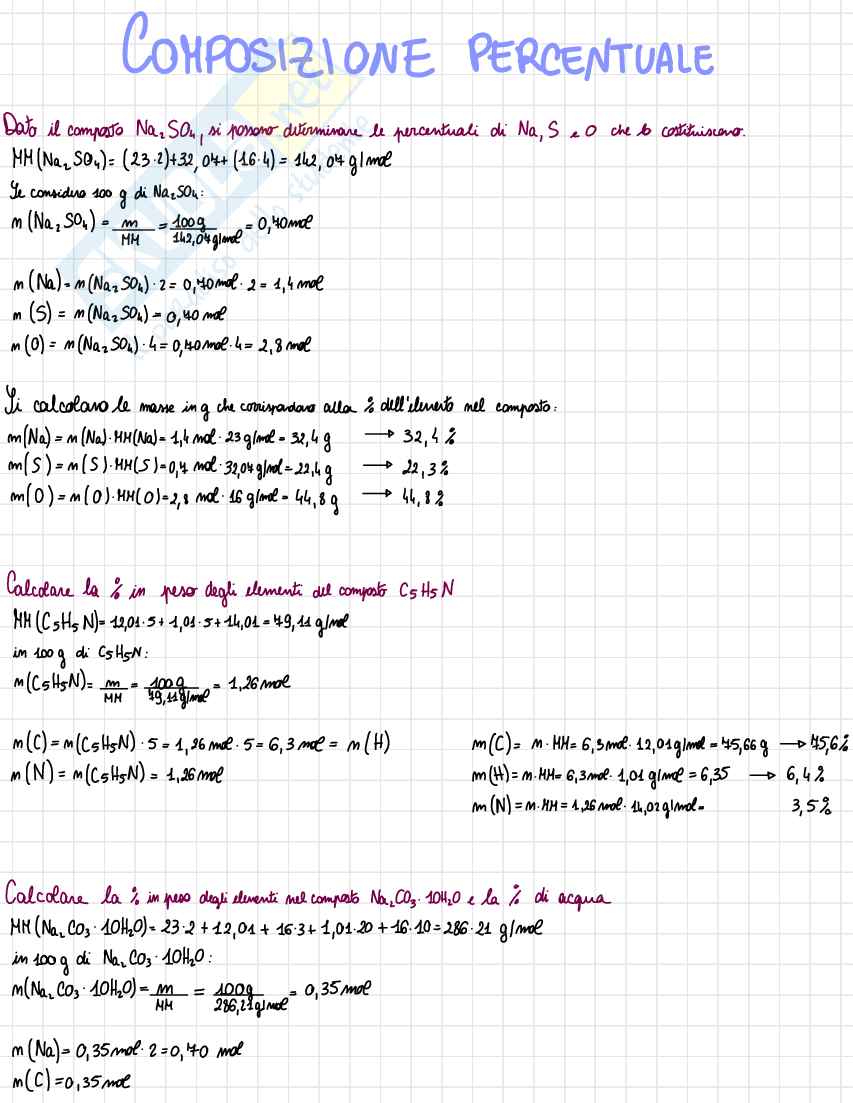 COMPOSIZIONE PERCENTUALE
Dato il composto Na₂SO₄, si possono determinare le percentuali di Na, S e O che lo costituiscono.
MM(Na₂SO₄)= (23·2)+32,04+(16·4)= 142,04 g/mol
Se considero 100 g di Na₂SO₄:
n(Na₂SO₄) = m/MM = 100g/142,04g/mol = 0,70mol
n(Na)= n(Na₂SO₄)·2= 0,70mol·2 = 1,4mol
n(S) = n(Na₂SO₄)= 0,70mol
n(O) = n(Na₂SO₄)·4= 0,70mol·4= 2,8mol
Si calcolano le masse in g che corrispondono alla % dell'elemento nel composto:
m(Na) = n(Na)·MM(Na)= 1,4 mol·23 g/mol = 32,4 g → 32,4%
m(S) = n(S)·MM(S)=0,7 mol·32,04g/mol=22,4g → 22,3%
m(O) = n(O)·MM(O)=2,8 mol·16 g/mol= 44,8 g → 44,8%
Calcolare la % in peso degli elementi del composto C₅H₅N
MM(C₅H₅N)= 12,01·5+1,01·5+14,01=79,11 g/mol
in 100g di C₅H₅N:
n(C₅H₅N)= m/MM = 100g/79,11g/mol = 1,26mol
n(C)= n(C₅H₅N)·5 = 1,26 mol·5= 6,3mol = n(H)
n(N) = n(C₅H₅N) = 1,26mol
m(C)= n·MM= 6,3mol·12,01g/mol=75,66g → 75,6%
m(H)= n·MM= 6,3mol·1,01 g/mol = 6,35 → 6,4%
m(N)= n·MM=1,26 mol·14,02g/mol= 3,5%
Calcolare la % in peso degli elementi nel composto Na₂CO₃·10H₂O e la % di acqua
MM(Na₂CO₃·10H₂O)= 23·2+12,01+16·3+1,01·20+16·10=286·21 g/mol
in 100g di Na₂CO₃·10H₂O:
n(Na₂CO₃·10H₂O)= m/MM = 100g/286,21g/mol = 0,35mol
n(Na)= 0,35mol·2=0,70 mol
n(C)=0,35mol